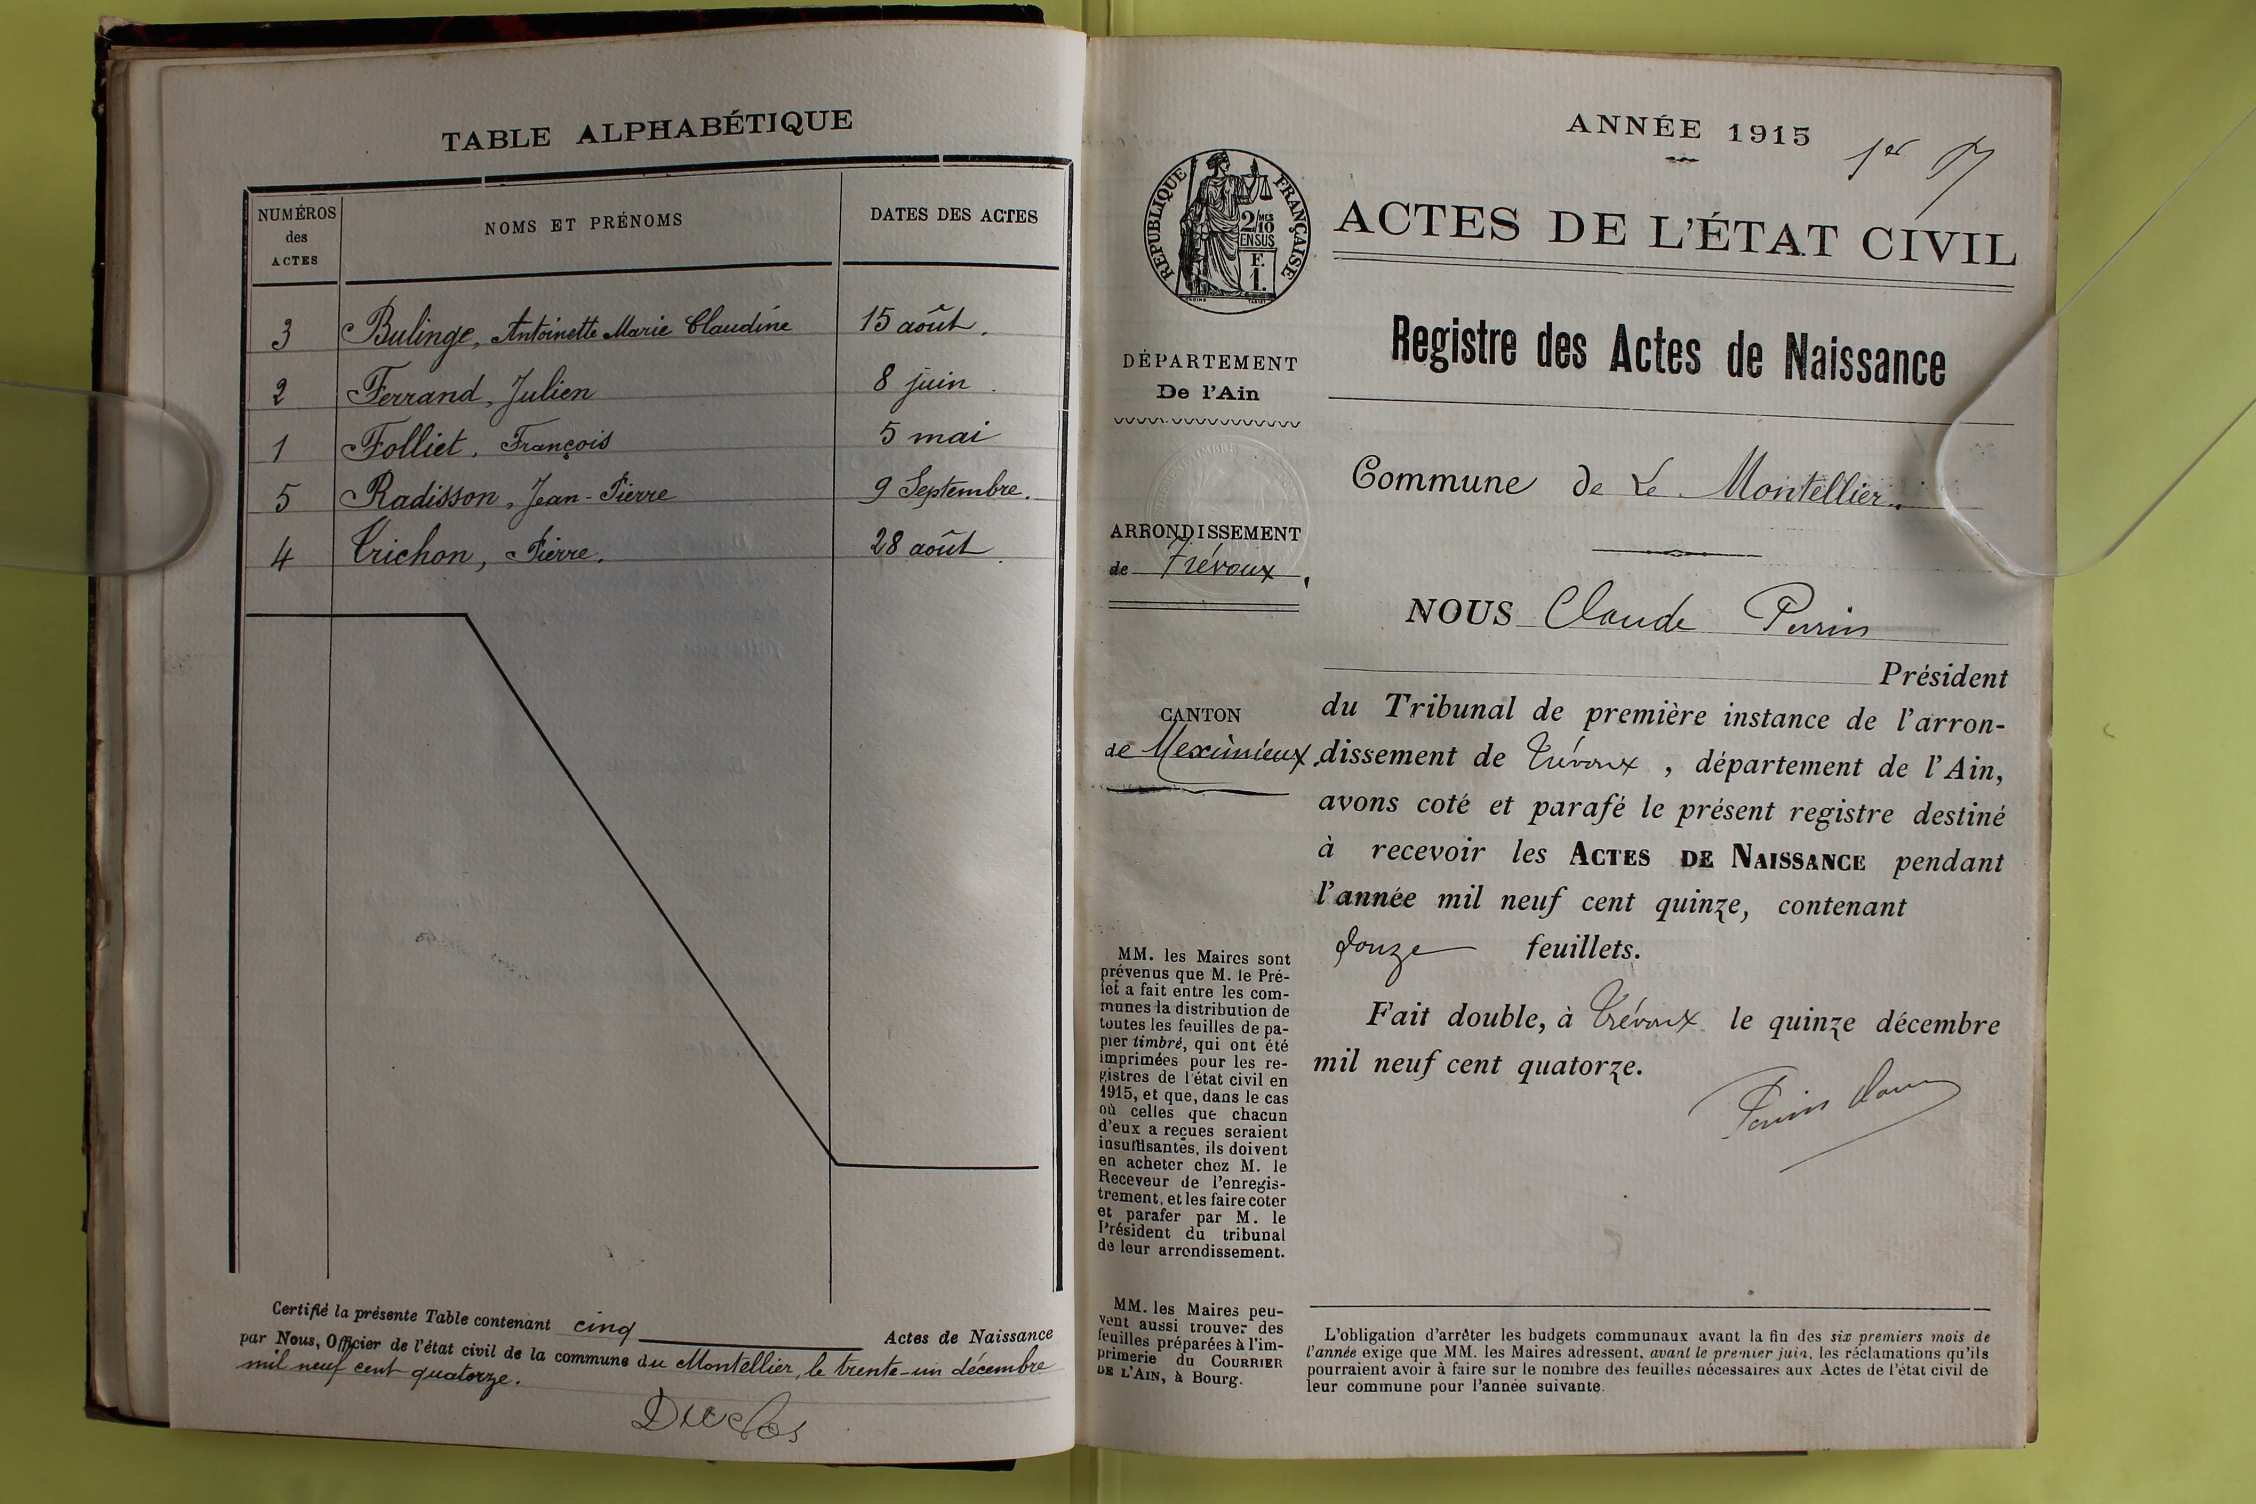 TABLE ALPHABÉTIQUE
NUMÉROS
des
ACTES
NOMS ET PRÉNOMS
DATES DES ACTES
3 Bulinge, Antoinette Marie Claudine 15 août.
2 Ferrand, Julien 8 juin.
1 Folliet, François 5 mai
5 Radisson, Jean-Pierre 9 Septembre.
4 Trichon, Pierre. 28 août.
Certifié la présente Table contenant cinq Actes de Naissance
par Nous, Officier de l'état civil de la commune du Montellier, le trente-un décembre
mil neuf cent quatorze.
Duclos
ANNÉE 1915
1er
RÉPUBLIQUE FRANÇAISE
2/10 MES
EN SUS
F.
1.
ACTES DE L'ÉTAT CIVIL
Registre des Actes de Naissance
DÉPARTEMENT
De l'Ain
Commune de Le Montellier.
ARRONDISSEMENT
de Trévoux,
CANTON
de Meximieux.
MM. les Maires sont
prévenus que M. le Pré-
fet a fait entre les com-
munes la distribution de
toutes les feuilles de pa-
pier timbré, qui ont été
imprimées pour les re-
gistres de l'état civil en
1915, et que, dans le cas
où celles que chacun
d'eux a reçues seraient
insuffisantes, ils doivent
en acheter chez M. le
Receveur de l'enregis-
trement, et les faire coter
et parafer par M. le
Président du tribunal
de leur arrondissement.
MM. les Maires peu-
vent aussi trouver des
feuilles préparées à l'im-
primerie du COURRIER
DE L'AIN, à Bourg.
NOUS Claude Perrin
Président
du Tribunal de première instance de l'arron-
dissement de Trévoux, département de l'Ain,
avons coté et parafé le présent registre destiné
à recevoir les ACTES DE NAISSANCE pendant
l'année mil neuf cent quinze, contenant
douze feuillets.
Fait double, à Trévoux le quinze décembre
mil neuf cent quatorze.
Perrin Claude
L'obligation d'arrêter les budgets communaux avant la fin des six premiers mois de
l'année exige que MM. les Maires adressent, avant le premier juin, les réclamations qu'ils
pourraient avoir à faire sur le nombre des feuilles nécessaires aux Actes de l'état civil de
leur commune pour l'année suivante.